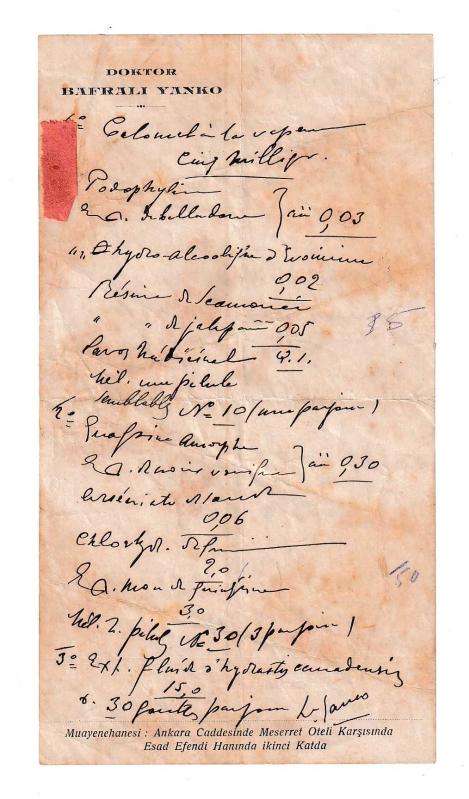 DOKTOR
BAFRALI YANKO
1º Calomel à la vapeur
Cinq milligr.
Podophylin
Ex. de belladone } āā 0,03
" hydro-alcoolique d'Evonimine
0,02
Résine de Scamonée
" " de jalap āā 0,05
Savon Médicinal Q.S.
Mél. une pilule
semblable Nº 10 (une par jour)
2º
Ex. de noix vomique } āā 0,30
Arséniate de soude
0,06
Chlorhyd. de
2,0
Ex. mou de
3,0
Mél. pilules Nº 30 (3 par jour)
3º Ext. fluide d'hydrastis canadensis
15,0
30 gouttes par jour Dr. Yanco
150
Muayenehanesi : Ankara Caddesinde Meserret Oteli Karşısında
Esad Efendi Hanında ikinci Katda